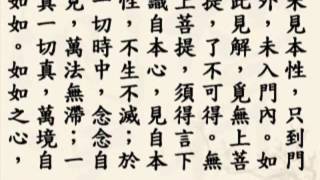 未見本性，只到門
外，未入門內。如
此見解，覓無上菩
提，了不可得。無
上菩提，須得言下
識自本心，見自本
性，不生不滅；於
一切時中，念念自
見，萬法無滯；一
真一切真，萬境自
如如。如如之心，